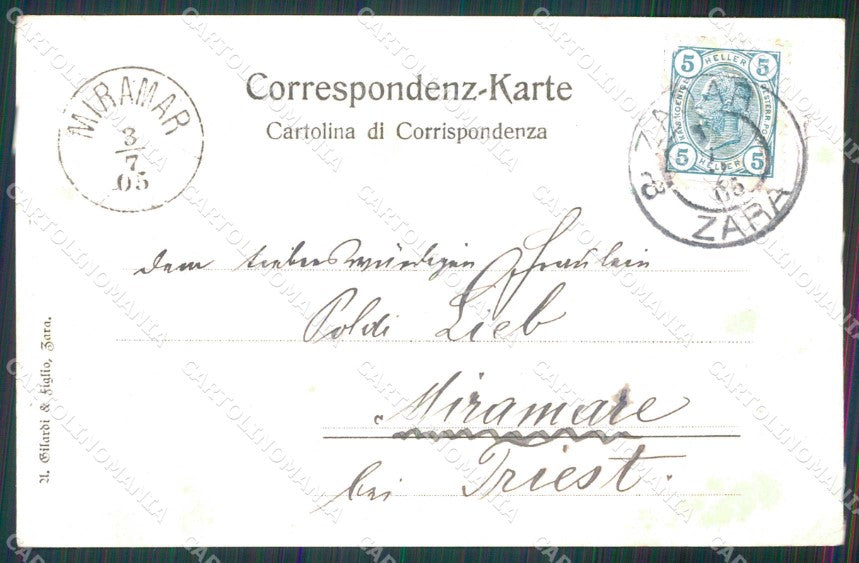 Correspondenz-Karte
Cartolina di Corrispondenza
MIRAMAR
3/7
05
5 HELLER 5
5 HELLER 5
ZARA
05
ZARA
dem liebenswürdigen Fräulein
Poldi Lieb
Miramare
bei Triest.
A. Gilardi & Figlio, Zara.
CARTOLINOMANIA